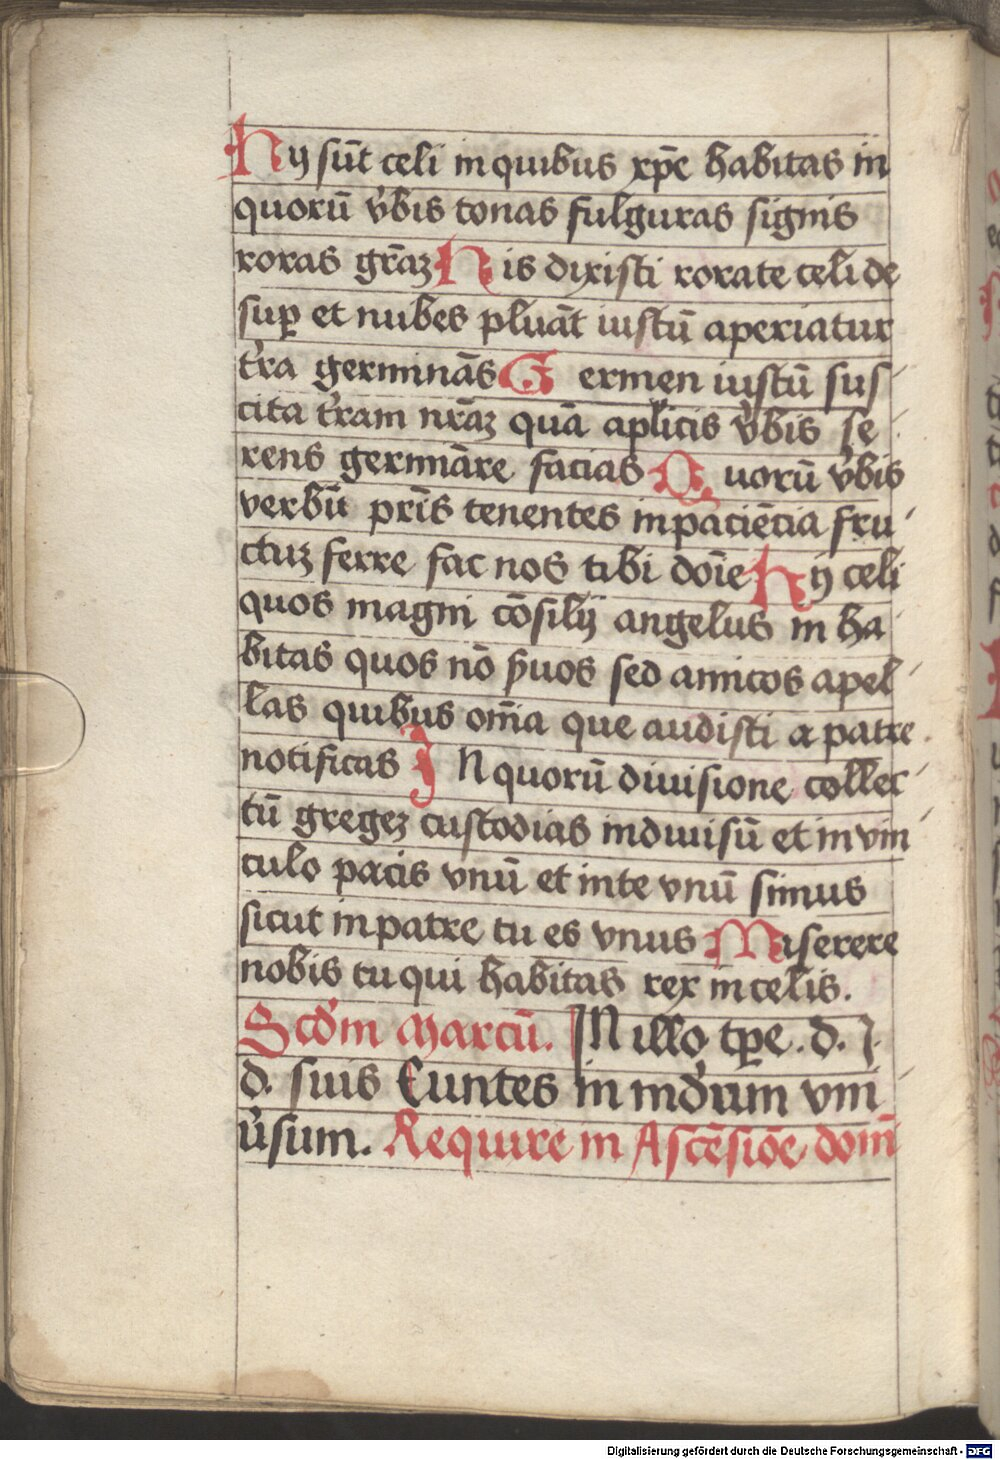 Hij sūt celi in quibus xp̄e habitas in
quorū v̓bis tonas fulguras signis
roras grāꝫ His dixisti rorate celi de
suꝑ et nubes pluāt iustū aperiatur
t̓ra germinās Germen iustū sus
cita t̓ram nrāꝫ quā aplicis v̓bis se
rens germiāre facias Quorū v̓bis
verbū pr̄is tenentes in paciēcia fru
ctuꝫ ferre fac nos tibi dōīe Hij celi
quos magni cōsilij angelus in ha
bitas quos nō s̓uos sed amicos apel
las quibus om̄ia que audisti a patre
notificas IN quorū diuisione collec
tū gregeꝫ custodias indiuisū et in vin
culo pacis vnū et in te vnū simus
sicut in patre tu es vnus Miserere
nobis tu qui habitas rex in celis.
Scd̓m Marcū. IN illo tꝑe . d. J.
d. suis Euntes in md̓um vni
u̓sum. Require in Ascēsiōe dom̄
Digitalisierung gefördert durch die Deutsche Forschungsgemeinschaft - DFG